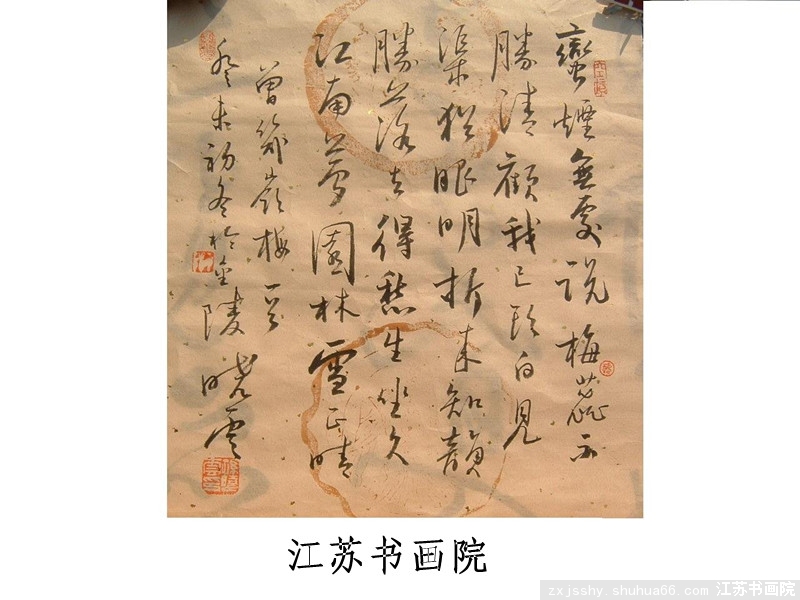 蠻煙無處說梅蕊不
勝清顧我已頭白見
渠猶眼明折來知韻
勝落去得愁生坐久
江南夢園林雪正晴
曾幾嶺梅一首
癸未初冬於金陵曉雲
江苏书画院
zxjsshy.shuhua66.com 江苏书画院